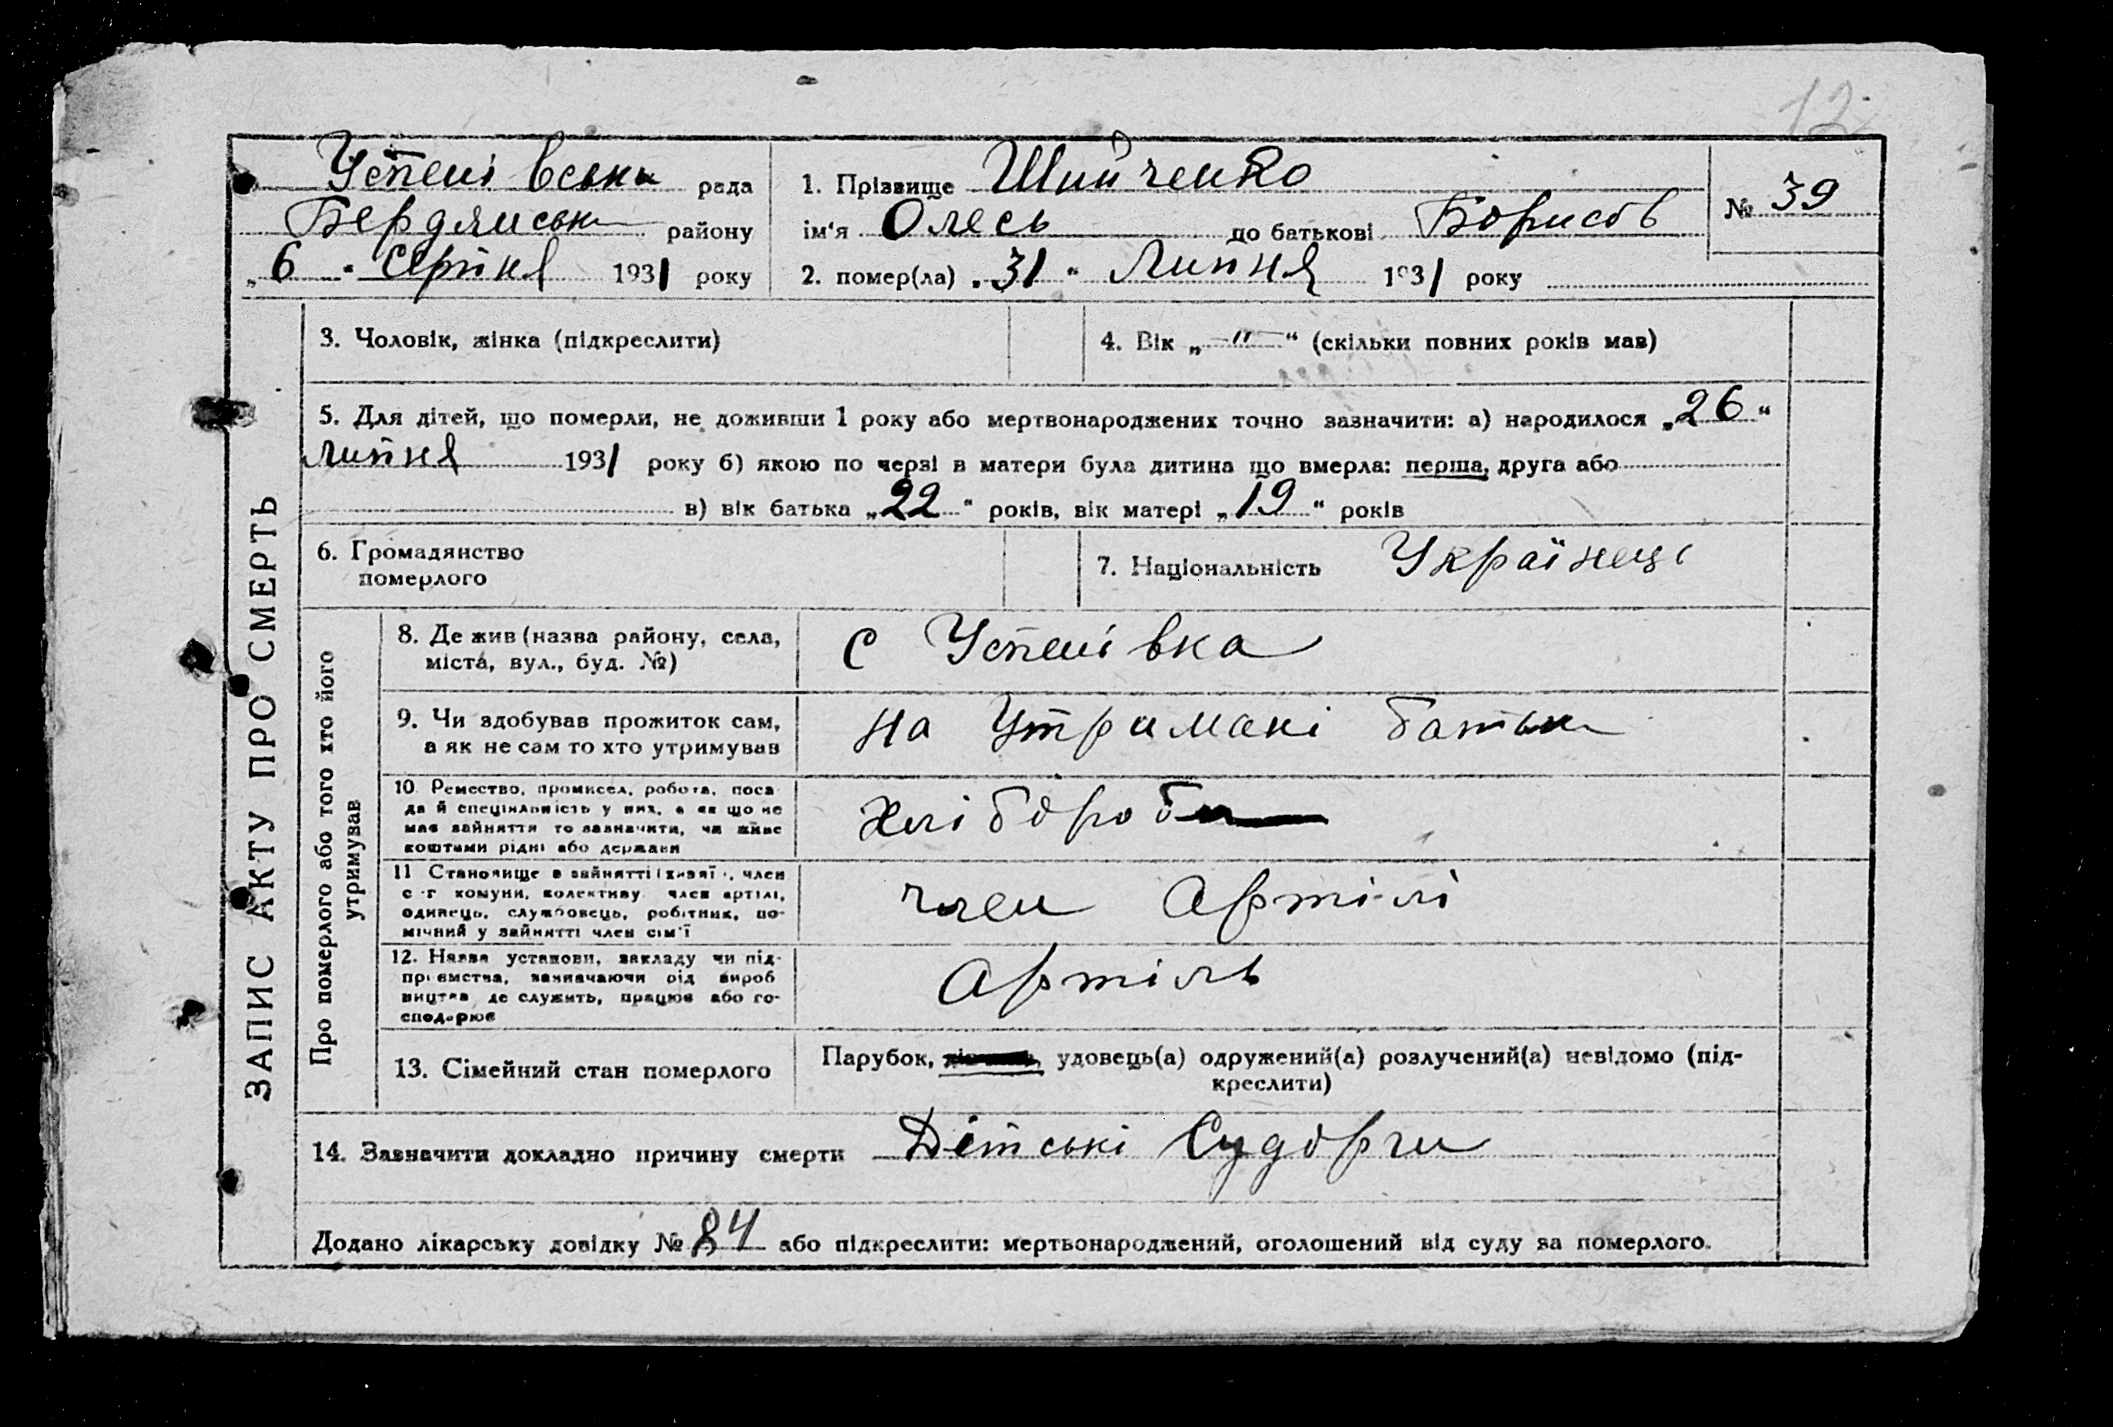 12
Успенівська рада
Бердянськ району
„6" Серпня 1931 року
1. Прізвище Шинченко
ім'я Олесь по батькові Борисов
№ 39
2. помер(ла) „31" Липня 1931 року
3. Чоловік, жінка (підкреслити)
4. Вік „—"—" (скільки повних років мав)
5. Для дітей, що померли, не доживши 1 року або мертвонароджених точно зазначити: а) народилося „26"
Липня 1931 року б) якою по черзі в матери була дитина що вмерла: перша, друга або
в) вік батька „22" років, вік матері „19" років
6. Громадянство
померлого
7. Національність Українець
ЗАПИС АКТУ ПРО СМЕРТЬ
Про померлого або того хто його
утримував
8. Де жив (назва району, села,
міста, вул., буд. №)
с Успенівка
9. Чи здобував прожиток сам,
а як не сам то хто утримував
На Утримані батьки
10. Ремество, промисел, робота, поса
да й спеціяльність у них, а як що не
має зайняття то зазначити, чи живе
коштами рідні або держави
Хліборобы
11 Становище в зайнятті (хазяї, член
с-г комуни, колективу член артілі,
одинець, службовець, робітник, по-
мічний у зайнятті член сім'ї
член Артілі
12. Назва установи, закладу чи під-
приємства, зазначаючи рід вироб
ництва де служить, працює або го-
сподарює
Артіль
13. Сімейний стан померлого
Парубок, удовець(а) одружений(а) розлучений(а) невідомо (під-
креслити)
14. Зазначити докладно причину смерти Дітські Судорги
Додано лікарську довідку № 84 або підкреслити: мертвонароджений, оголошений від суду за померлого.